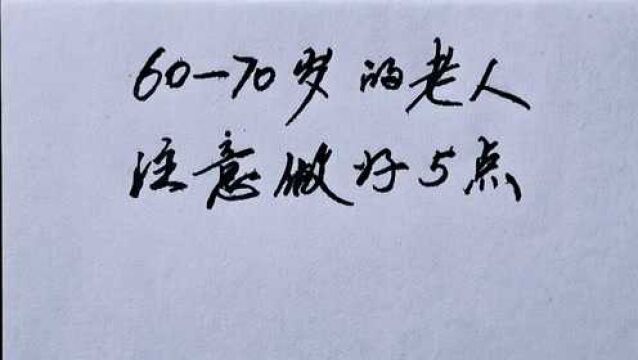 60—70岁的老人
注意做好5点